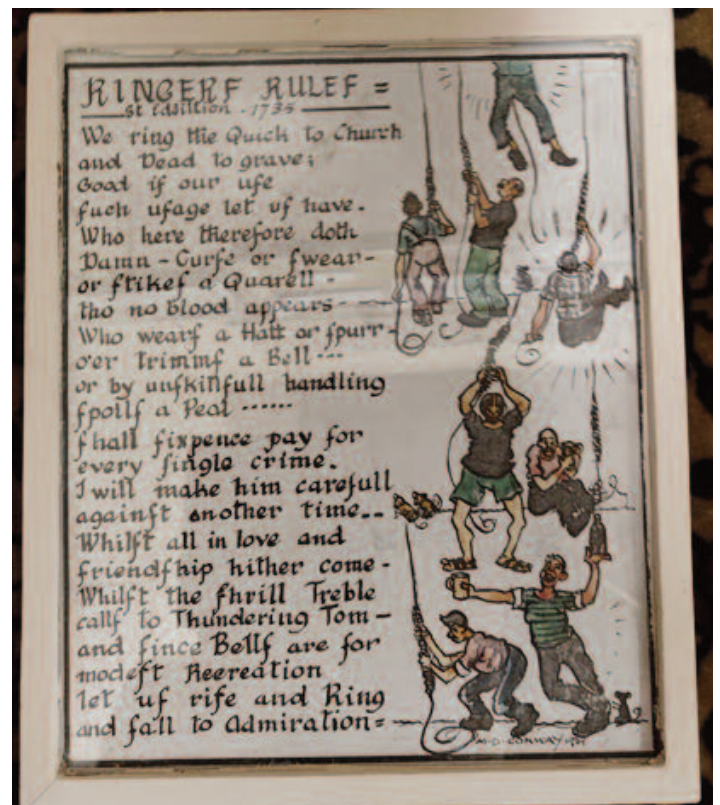 RINGERF RULEF =
1735
We ring the Quick to Church
and Dead to grave;
Good if our ufe
fuch ufage let uf have.
Who here therefore doth
Damn - Curfe or fwear -
or ftrikef a Quarell -
tho no blood appears -
Who wearf a Hatt or fpurr -
o'er trimmf a Bell ---
or by unfkillfull handling
fpoilf a Peal ......
fhall fixpence pay for
every fingle crime.
I will make him carefull
againft another time --
Whilft all in love and
friendfhip hither come -
Whilft the fhrill Treble
callf to Thundering Tom -
and fince Bellf are for
modeft Recreation
let uf rife and Ring
and fall to Admiration =
M.D. CONWAY